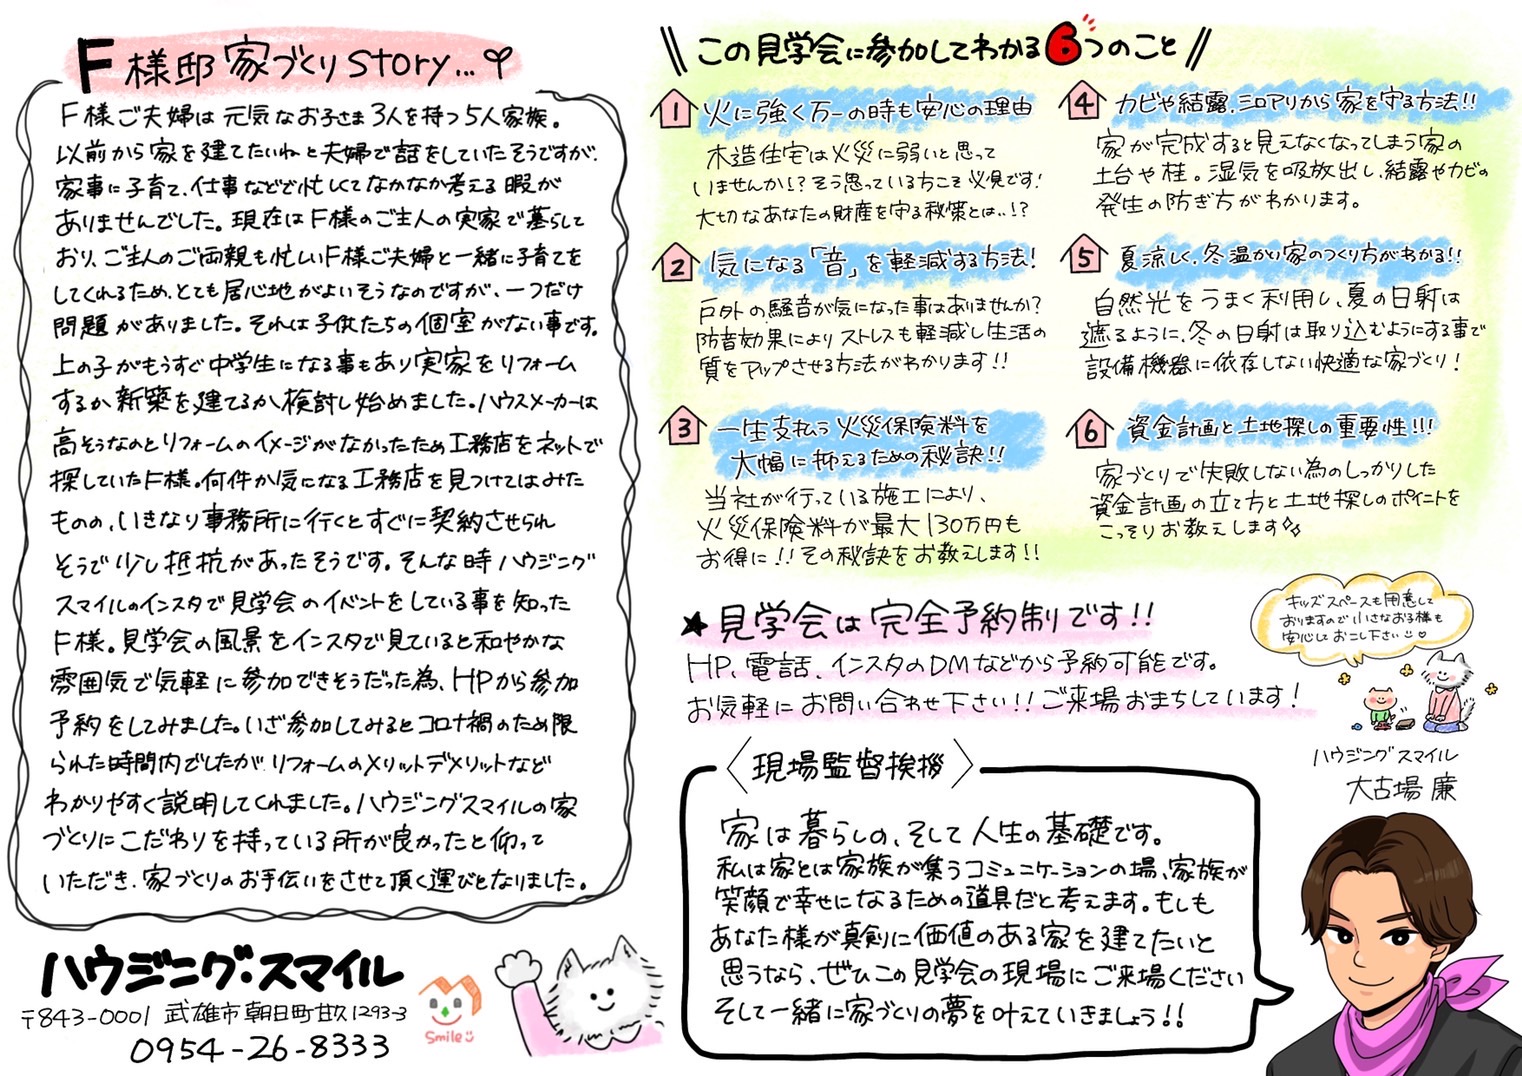 F様邸 家づくりstory...
F様ご夫婦は元気なお子さま3人を持つ5人家族。
以前から家を建てたいねと夫婦で話をしていたそうですが、
家事に子育て、仕事などで忙しくてなかなか考える暇が
ありませんでした。現在はF様のご主人の実家で暮らして
おり、ご主人のご両親も忙しいF様ご夫婦と一緒に子育てを
してくれるため、とても居心地がよいそうなのですが、一つだけ
問題がありました。それは子供たちの個室がない事です。
上の子がもうすぐ中学生になる事もあり実家をリフォーム
するか新築を建てるか検討し始めました。ハウスメーカーは
高そうなのとリフォームのイメージがなかったため工務店をネットで
探していたF様。何件か気になる工務店を見つけてはみた
ものの、いきなり事務所に行くとすぐに契約させられ
そうで少し抵抗があったそうです。そんな時ハウジング
スマイルのインスタで見学会のイベントをしている事を知った
F様。見学会の風景をインスタで見ていると和やかな
雰囲気で気軽に参加できそうだった為、HPから参加
予約をしてみました。いざ参加してみるとコロナ禍のため限
られた時間内でしたがリフォームのメリットデメリットなど
わかりやすく説明してくれました。ハウジングスマイルの家
づくりにこだわりを持っている所が良かったと仰って
いただき、家づくりのお手伝いをさせて頂く運びとなりました。
ハウジング・スマイル
〒843-0001 武雄市朝日町甘久1293-3
0954-26-8333
Smile
この見学会に参加してわかる6つのこと
1 火に強く万一の時も安心の理由
木造住宅は火災に弱いと思って
いませんか!?そう思っている方こそ必見です!
大切なあなたの財産を守る秘策とは..!?
2 気になる「音」を軽減する方法!
戸外の騒音が気になった事はありませんか?
防音効果によりストレスも軽減し生活の
質をアップさせる方法がわかります!!
3 一生支払う火災保険料を
大幅に抑えるための秘訣!!
当社が行っている施工により、
火災保険料が最大130万円も
お得に!!その秘訣をお教えします!!
4 カビや結露、シロアリから家を守る方法!!
家が完成すると見えなくなってしまう家の
土台や柱。湿気を吸放出し、結露やカビの
発生の防ぎ方がわかります。
5 夏涼しく、冬温かい家のつくり方がわかる!!
自然光をうまく利用し、夏の日射は
遮るように、冬の日射は取り込むようにする事で
設備機器に依存しない快適な家づくり!
6 資金計画と土地探しの重要性!!!
家づくりで失敗しない為のしっかりした
資金計画の立て方と土地探しのポイントを
こっそりお教えします
★見学会は完全予約制です!!
HP、電話、インスタのDMなどから予約可能です。
お気軽にお問い合わせ下さい!!ご来場おまちしています!
キッズスペースも用意して
おりますので小さなお子様も
安心しておこし下さい
ハウジングスマイル
大古場 廉
〈現場監督挨拶〉
家は暮らしの、そして人生の基礎です。
私は家とは家族が集うコミュニケーションの場、家族が
笑顔で幸せになるための道具だと考えます。もしも
あなた様が真剣に価値のある家を建てたいと
思うなら、ぜひこの見学会の現場にご来場ください
そして一緒に家づくりの夢を叶えていきましょう!!